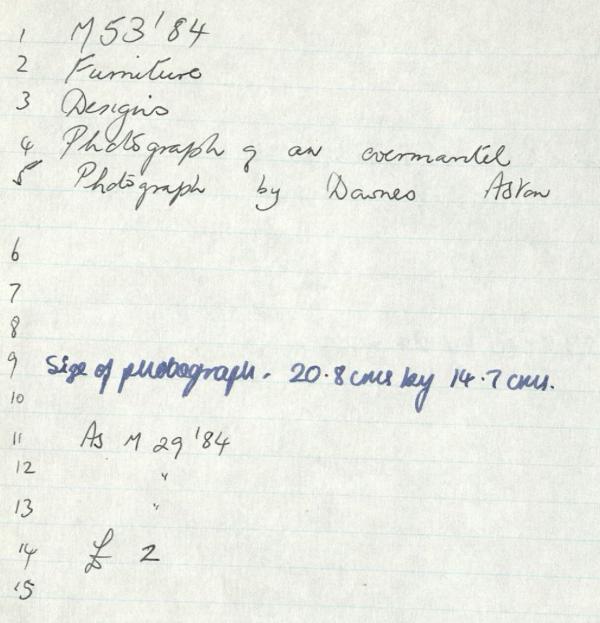 1 M53'84
2 Furniture
3 Designs
4 Photograph of an overmantel
5 Photograph by Dawnes Aston
6
7
8
9 Size of photograph. 20.8cms by 14.7cms.
10
11 As M 29'84
12 "
13 "
14 £ 2
15